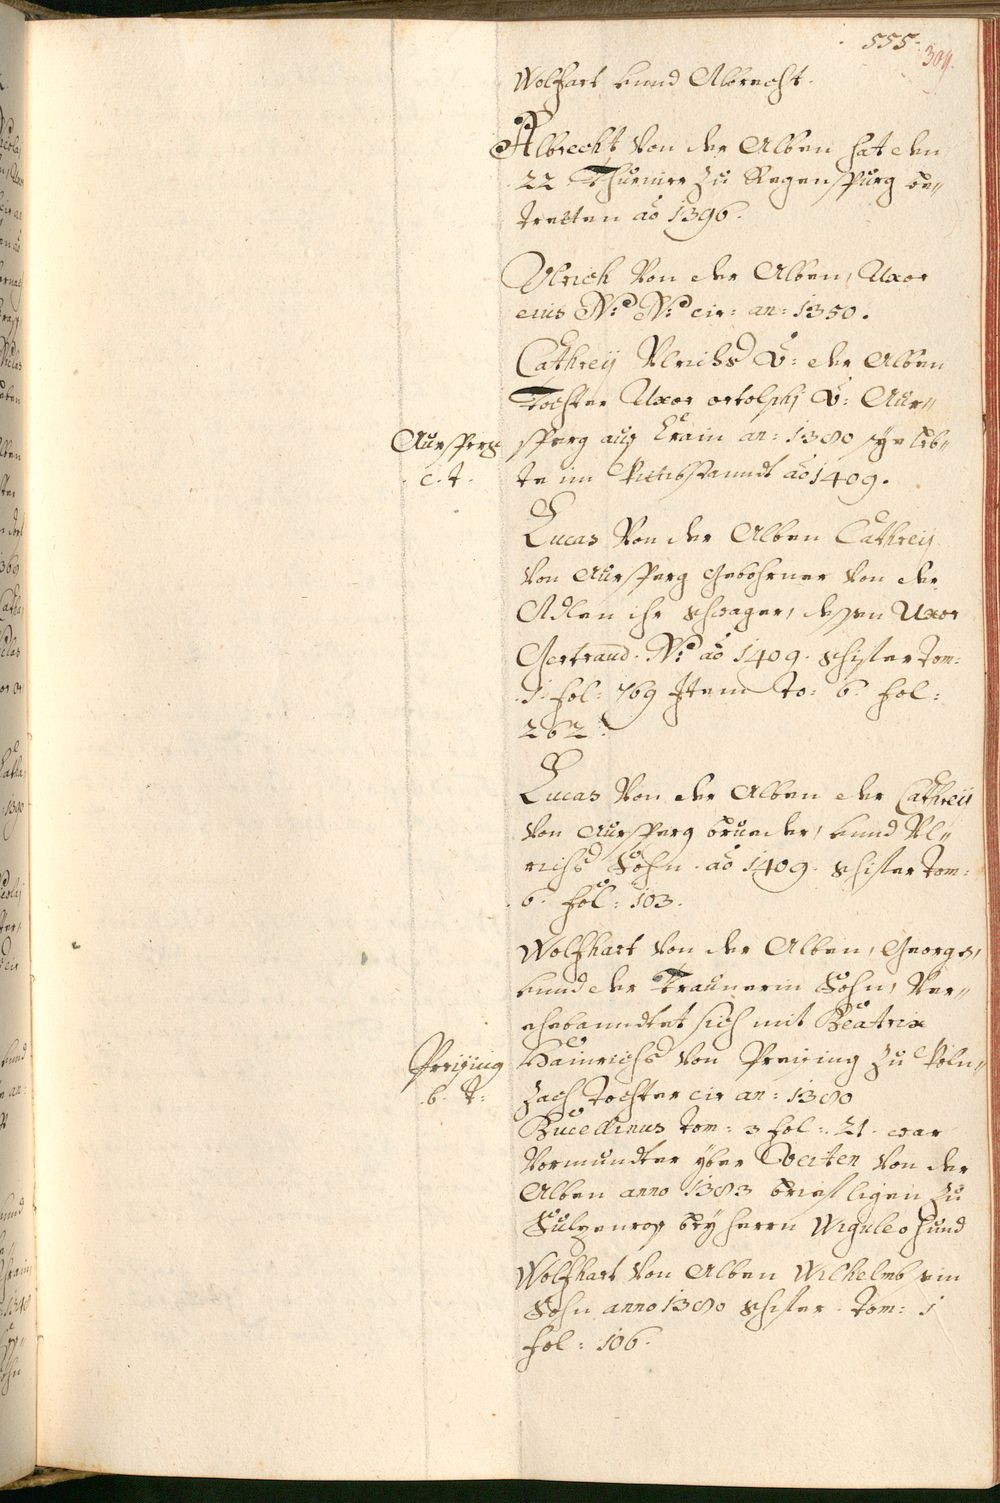 555.
309.
Wolfhart unnd Albrecht.
Albrecht von der Alben hat den
22 Thurnier zu Regenspurg be„
tretten aõ 1396.
Ulrich von der Alben, Uxor
eius N: N: cir: an: 1350.
Cathreÿ Ulrichs V: der Alben
Tochter Uxor ortolphj V: Aur„
Aursperg sperg aus Crain an: 1380 sÿe leb„
c. t. te im Wittibstanndt aõ 1409.
Lucas von der Alben Cathreÿ
von Aursperg gebohrner von der
Alben ihr schwager, dessen Uxor
Gertraud. N: aõ 1409. schifer tom:
1. fol: 769 Item to: 6. fol:
262.
Lucas von der Alben der Cathreÿ
von Aursperg brueder, unnd Ul„
richs Sohn. aõ 1409. schifer tom:
6. fol: 103.
Wolfhart von der Alben, Georgs,
unnd der Traunerin Sohn, Ver„
ehebanndtet sich mit Beatrix
Preÿsing Hainrichs von Preÿsing zu Woln„
b. t: zach Tochter cir an: 1380
Bucellinus tom: 3 fol: 21. war
Vormundter yber Veiten von der
Alben anno 1383 brief ligen zu
Sulzenros beÿ herrn Wiguleo hund
Wolfhart von Alben Wilhelmb ein
Sohn anno 1380 schifer. tom: 1
fol: 106.